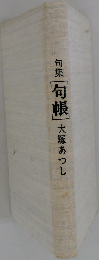 句集「句帳」大塚あつし